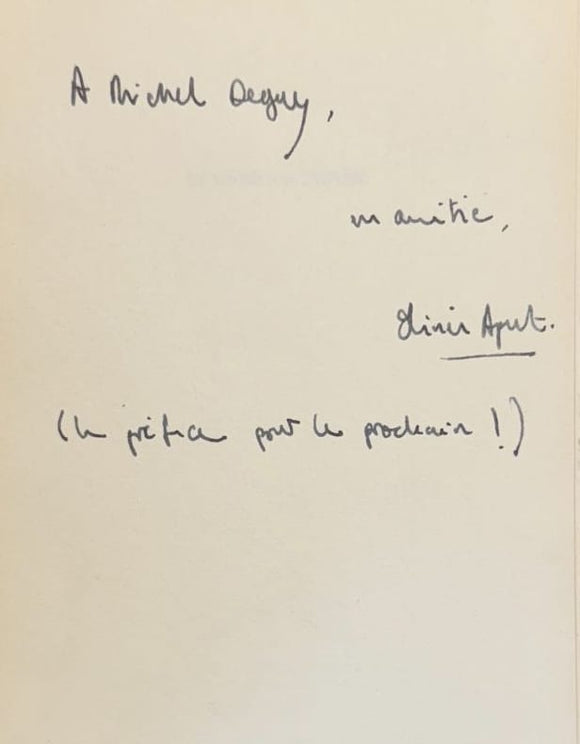 A Michel Deguy,
en amitié,
Olivier Apert.
(la préface pour le prochain !)